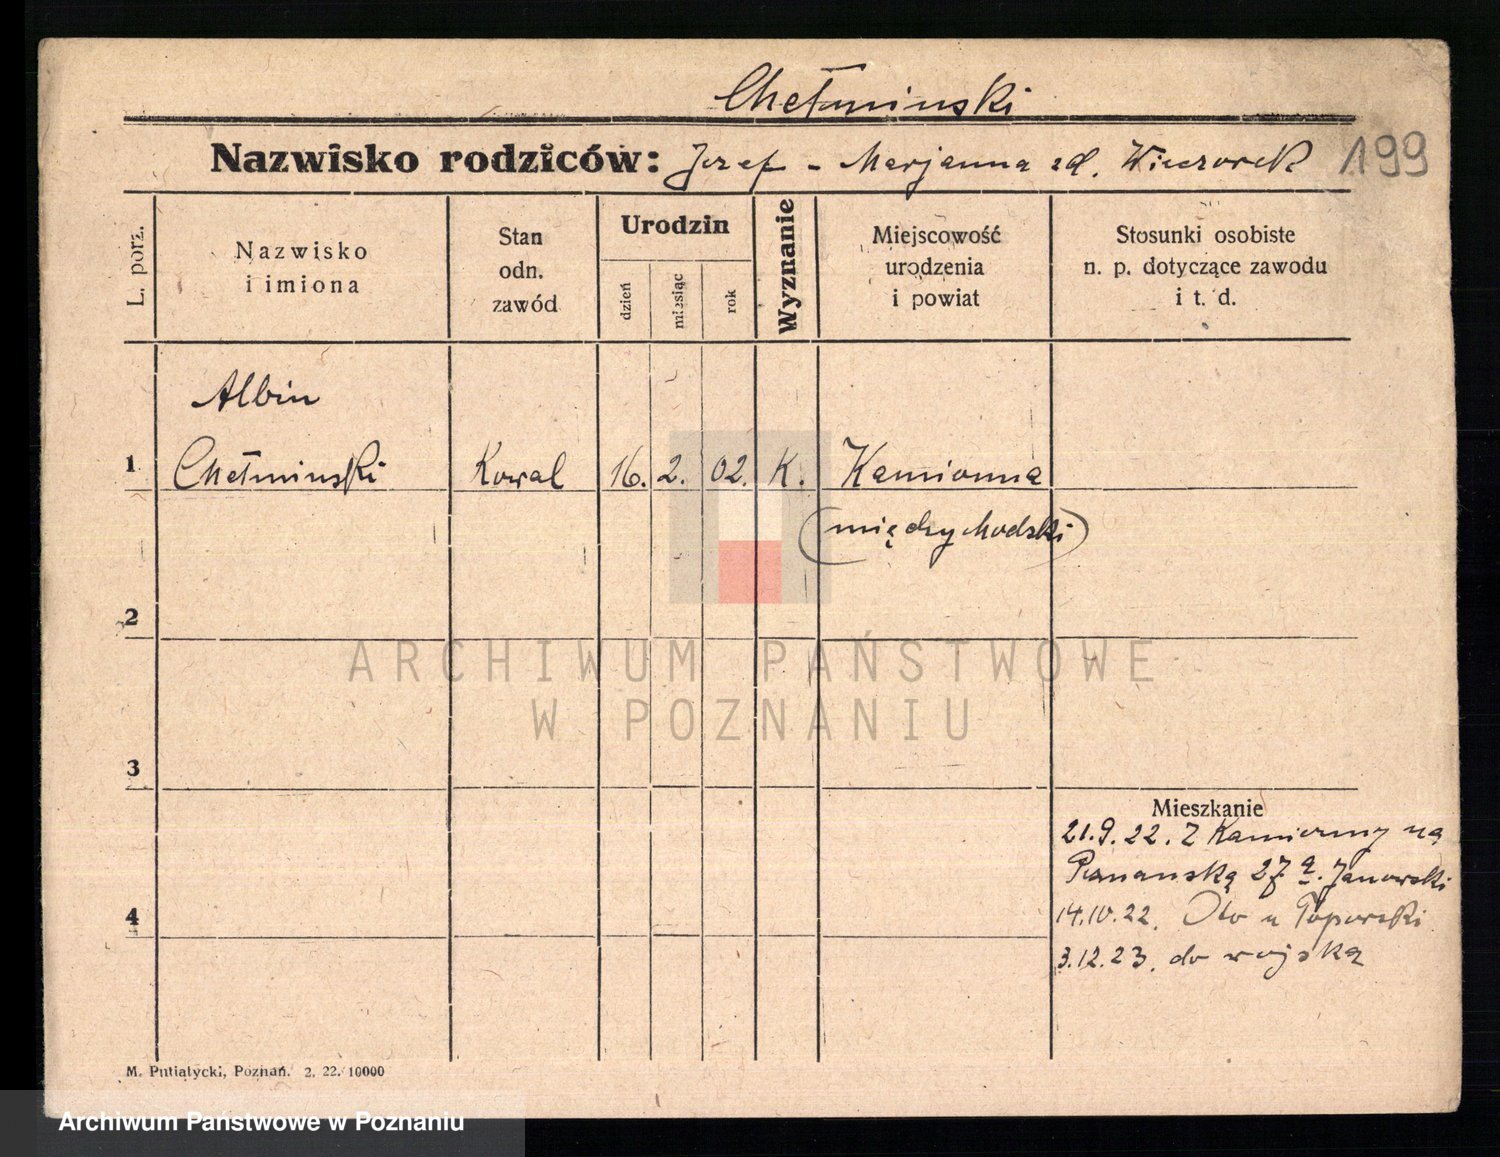 Chełminski
Nazwisko rodziców: Jozef - Marjanna zd. Wieczorek
199
L. porz.
Nazwisko
i imiona
Stan
odn.
zawód
Urodzin
dzień
miesiąc
rok
Wyznanie
Miejscowość
urodzenia
i powiat
Stosunki osobiste
n. p. dotyczące zawodu
i t. d.
Albin
1 Chełminski Kowal 16. 2. 02. K. Kamionna
(międzychodzki)
2
ARCHIWUM PAŃSTWOWE
W POZNANIU
3
Mieszkanie
21.9.22. Z Kamionny na
27 a. Janowski
4
14.10.22. Oto u Toporski
3.12.23. do wojska
M. Putiatycki, Poznań. 2. 22. 10000
Archiwum Państwowe w Poznaniu